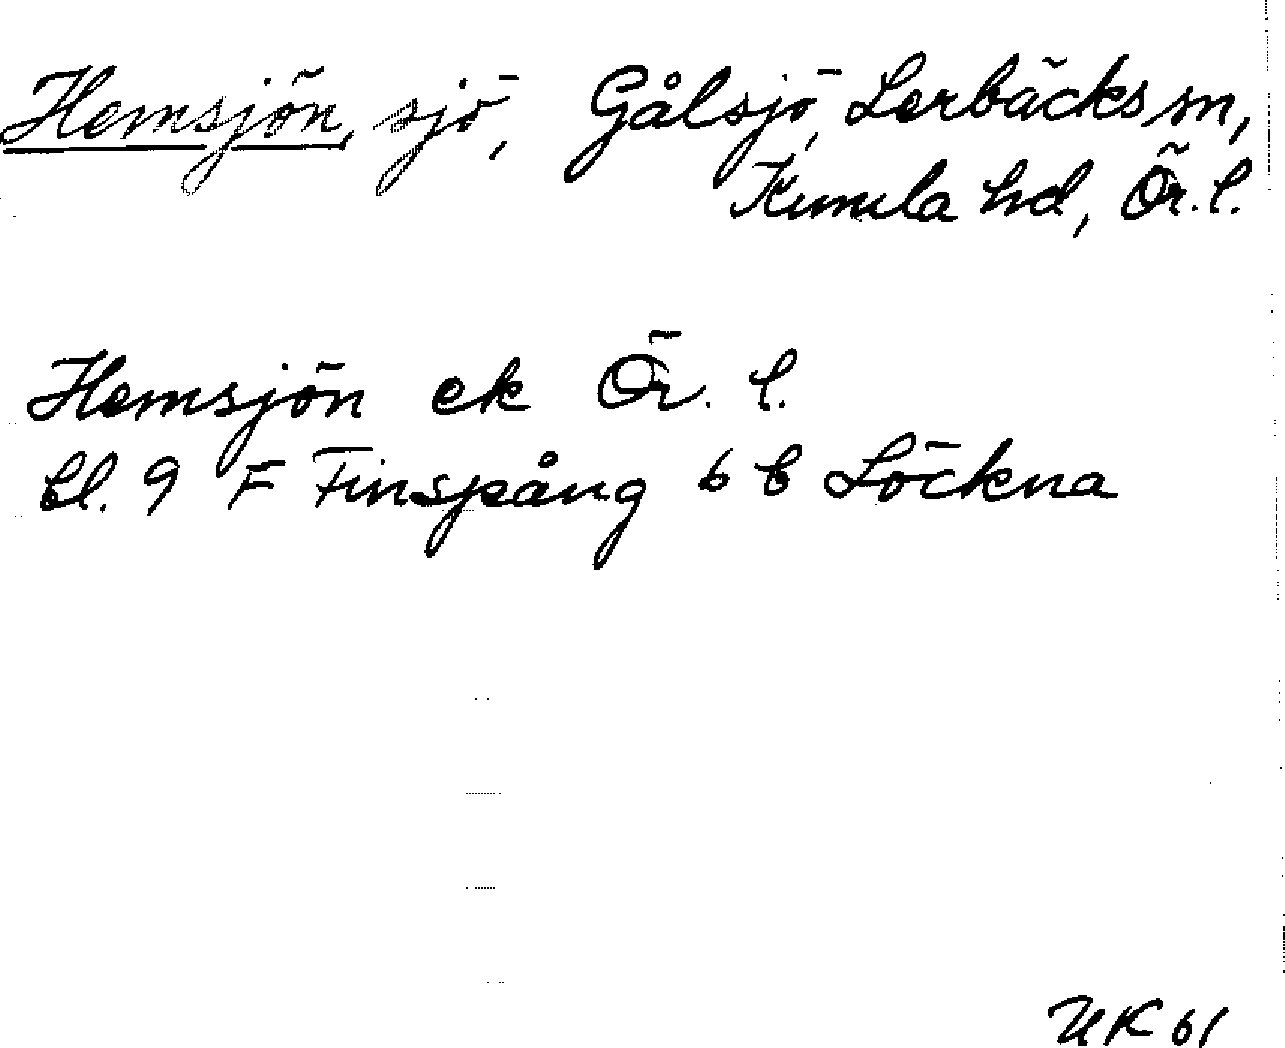 Hemsjön, sjö, Gålsjö, Lerbäcks sn,
Kumla hd, Ör. l.
Hemsjön ek Ör. l.
bl. 9 F Finspång 6 b Löckna
UK 61